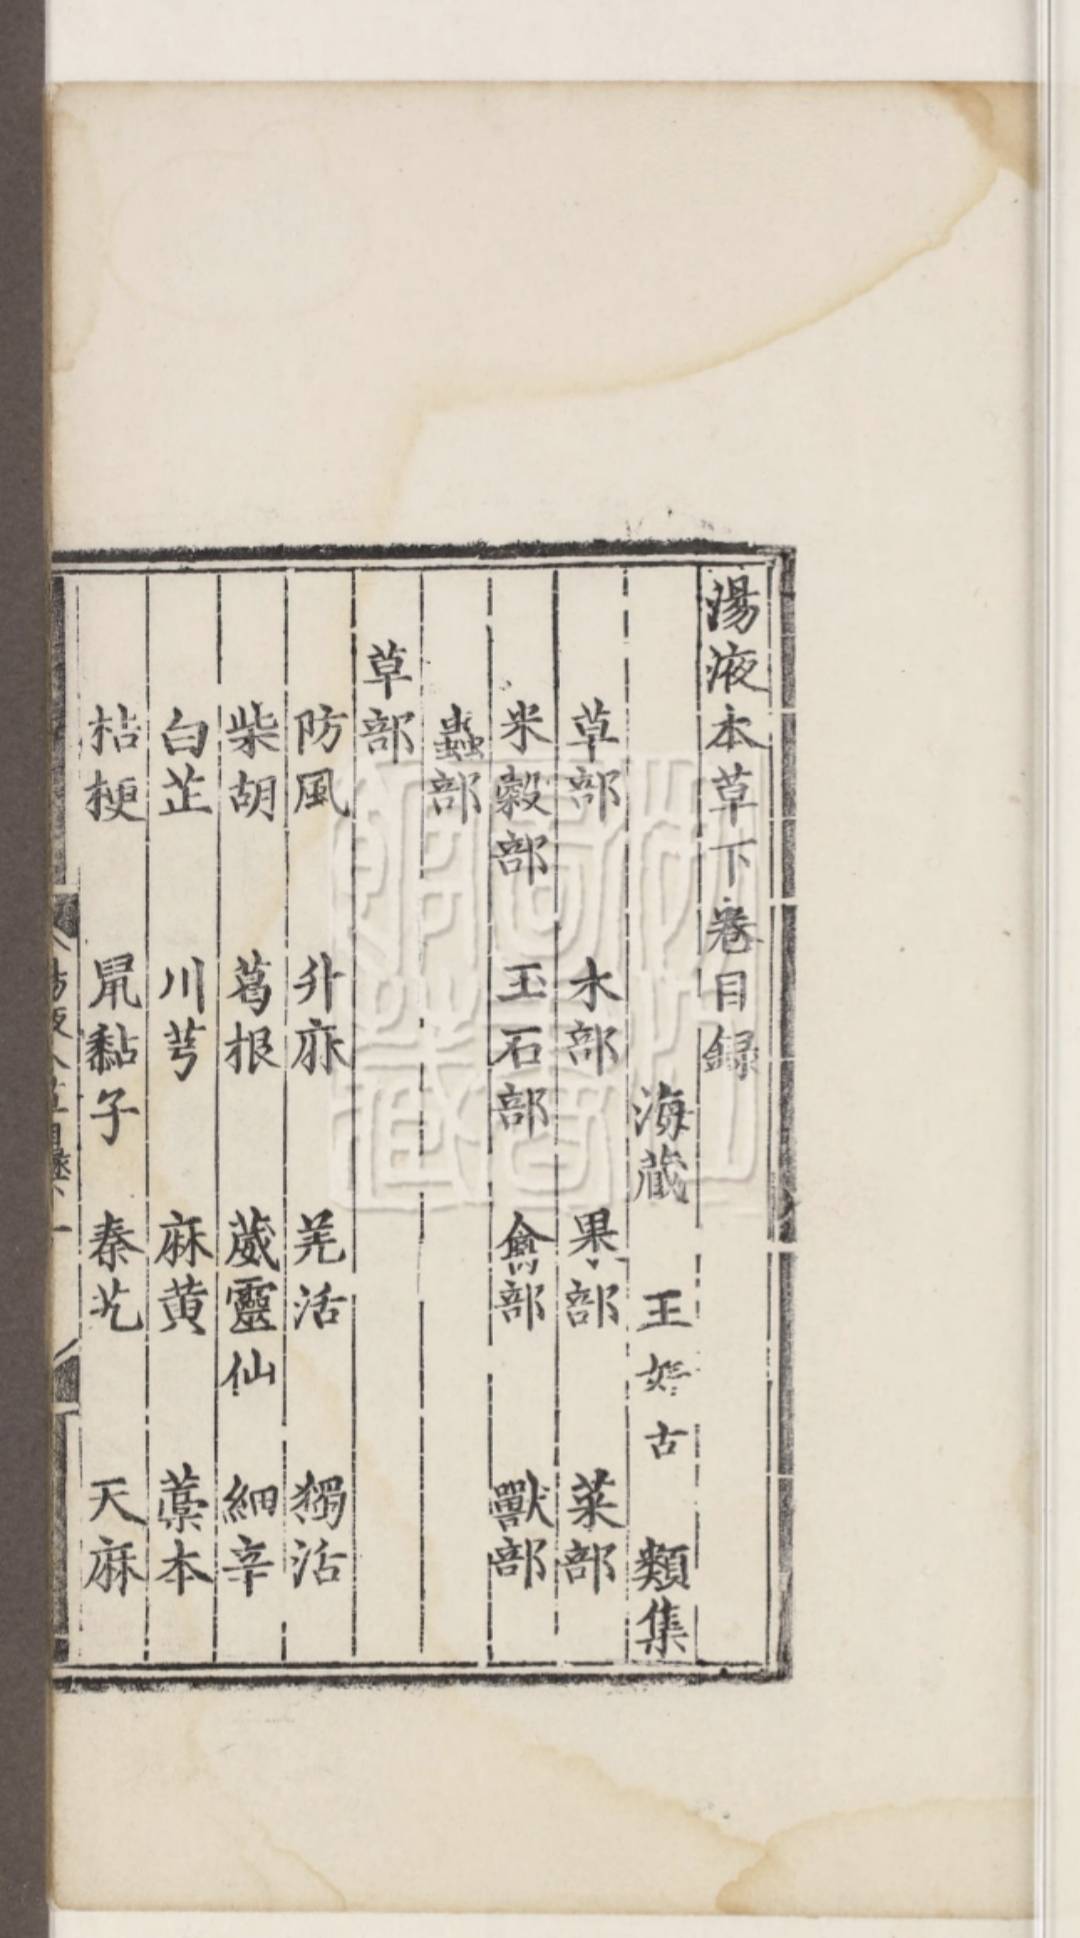 湯液本草下卷目録
海藏 王好古 類集
草部 木部 果部 菜部
米穀部 玉石部 禽部 獸部
蟲部
草部
防風 升麻 羌活 獨活
柴胡 葛根 葳靈仙 細辛
白芷 川芎 麻黄 藁本
桔梗 鼠黏子 秦艽 天麻